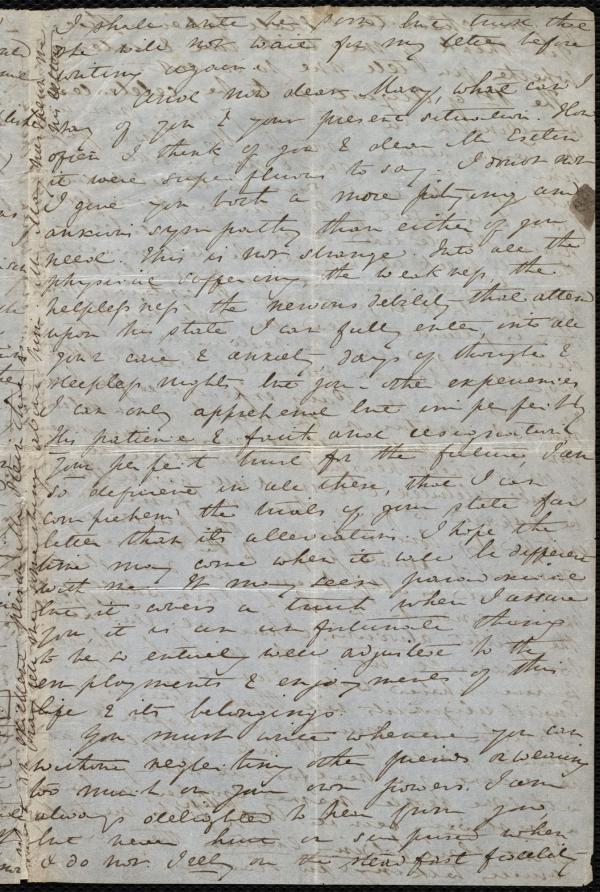 I shall write her soon but trust that
she will not wait for my letter before
writing again.
And now dear Mary, what can I
say of you & your present situation. How
often I think of you & dear Mr Estlin
it were superfluous to say. I doubt not
I give you both a more pitying and
anxious sympathy than either of you
need. This is not strange. Into all the
physical suffering, the weakness, the
helplessness the nervous debility that attend
upon his state I can fully enter, into all
your care & anxiety days of thought &
sleepless nights but your other experiences
I can only apprehend but imperfectly
His patience & faith and resignation
your perfect trust for the future, I am
so deficient in all these, that I can
comprehend the trials of your state far
better than its alleviations. I hope the
time may come when it will be different
with me. It may seem paradoxical
but it covers a truth when I assure
you, it is an unfortunate thing
to be so entirely well adjusted to the
employments & enjoyments of this
life & its belongings.
You must write whenever you can
without neglecting other friends or wearing
too much on your own powers. I am
always delighted to hear from you
but never hurt or surprised when
I do not. I rely on the steadfast fidelity